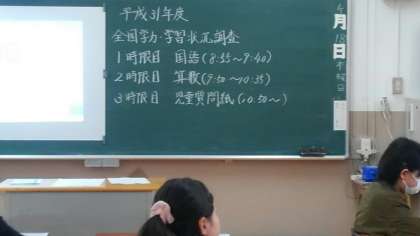 平成31年度
全国学力・学習状況調査
1時限目 国語(8:55〜9:40)
2時限目 算数(9:50〜10:35)
3時限目 児童質問紙(10:50〜)
4
月
18
日
木曜日